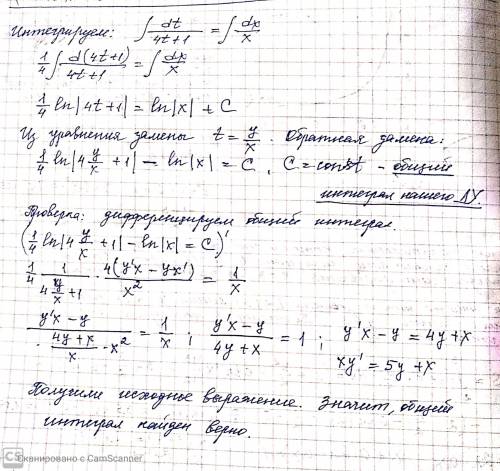 Интегрируем: ∫ dt/(4t+1) = ∫ dx/x
1/4 ∫ d(4t+1)/(4t+1) = ∫ dx/x
1/4 ln|4t+1| = ln|x| + C
Из уравнения замены t = y/x. Обратная замена:
1/4 ln|4 y/x + 1| − ln|x| = C, C = const - общий
интеграл нашего ДУ.
Проверка: дифференцируем общий интеграл.
(1/4 ln|4 y/x + 1| − ln|x| = C)'
1/4 · 1/(4 y/x + 1) · 4(y'x − yx')/x² = 1/x
(y'x − y)/((4y + x)/x · x²) = 1/x ; (y'x − y)/(4y + x) = 1 ; y'x − y = 4y + x
xy' = 5y + x
Получили исходное выражение. Значит, общий
интеграл найден верно.
CS Сканировано с CamScanner